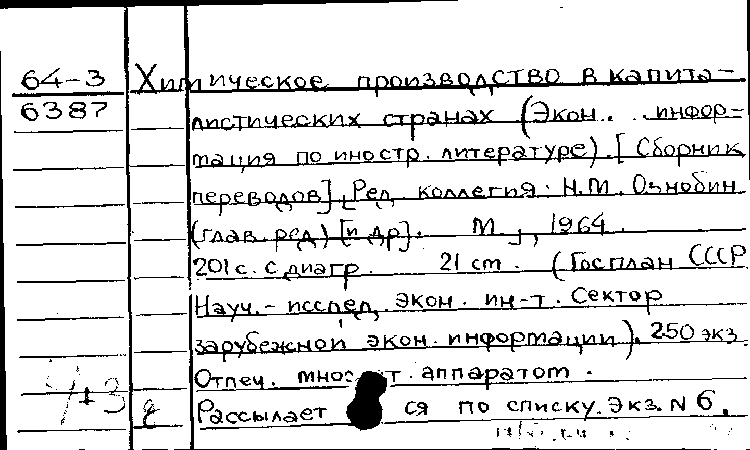 64-3 Химическое производство в капита-
6387 листических странах (Экон. информ-
мация по иностр. литературе). [Сборник
переводов]. Ред. коллегия: Н.М. Ознобин
(глав. ред.) [и др]. М., 1964.
201с. с диагр. 21 см. (Госплан СССР
Науч.-исслед. экон. ин-т. Сектор
зарубежной экон. информации). 250 экз.
Отпеч. т. аппаратом.
4+3 г Рассылает ся по списку. Экз. N 6.